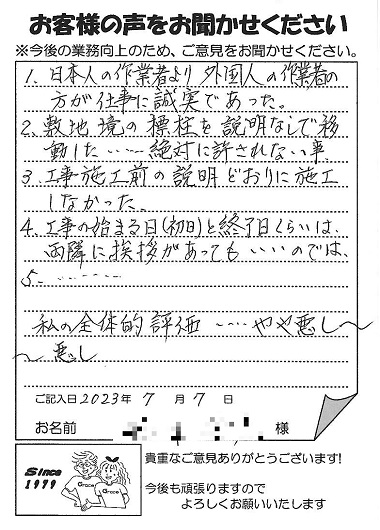 お客様の声をお聞かせください
※今後の業務向上のため、ご意見をお聞かせください。
1. 日本人の作業者より外国人の作業者の
方が仕事に誠実であった。
2. 敷地境の標柱を説明なしで移
動した……絶対に許されない事
3. 工事施工前の説明どおりに施工
しなかった。
4. 工事の始まる日(初日)と終了日くらいは、
両隣に挨拶があってもいいのでは、
5. ………
私の全体的評価 …… やや悪し〜
〜悪し
ご記入日 2023年 7月 7日
お名前 様
Since
1979
Grace
Grace
貴重なご意見ありがとうございます!
今後も頑張りますので
よろしくお願いいたします